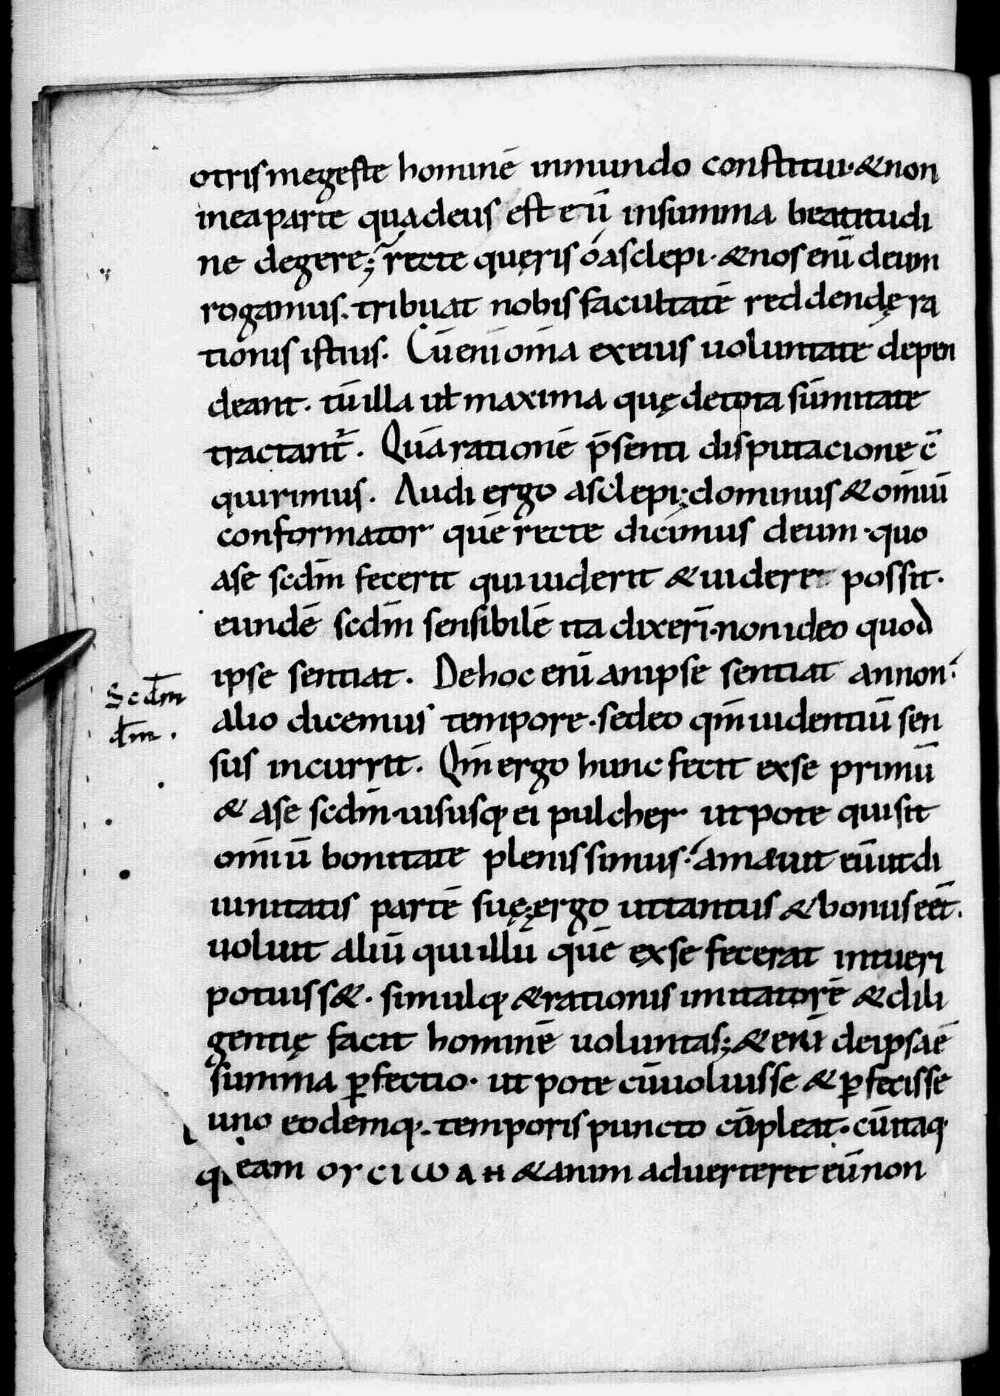 otrismegeste hominē inmundo constitui· &non
ineaparte quadeus est eū insumma beatitudi
ne degere; r̄ recte quęris óasclepi· &nos enī deum
rogamus. tribuat nobis facultatē reddendę ra
tionis istius. Cūenī om̄ia exeius uoluntate depen
deant. tū illa ul̄ maxima quę detota sūmitate
tractant̄. Quā rationē p̄senti disputacione c̄
quirimus. Audi ergo asclepi; dominus &om̄iū
conformator quē recte dicimus deum· quo
ase scdm̄ fecerit qui uiderit &uidere possit.
eundē scdm̄ sensibilē ita dixerī· nonideo quod
ipse sentiat. Dehoc enī anipse sentiat annon·
alio dicemus tempore· sedeo qm̄ uidentiū sen
sus incurrit. Qm̄ ergo hunc fecit exse primū
& ase scdm̄· uisusq; ei pulcher utpote quisit
om̄iū bonitate plenissimus· amauit eūutdi
uinitatis partē suę; ergo uttantus &bonus eēt.
uoluit aliū qui illū quē exse fecerat intueri
potuiss&. simulq; &rationis imitatorē &dili
gentię facit hominē uoluntas; &enī deipsaē
summa p̄fectio· utpote cūuoluisse &p̄fecisse
uno eodemq;. temporis puncto cūpleat· cūitaq;
Scdm̄
dm̄.
q; eam ΟΥCΙWΔΗ &animaduerteret eūnon